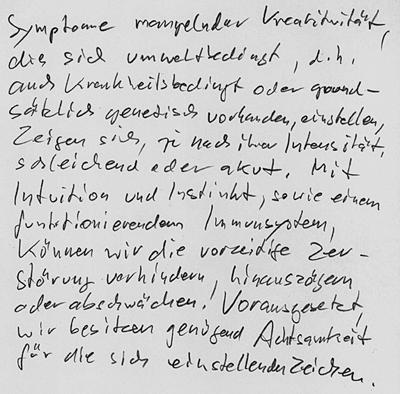 Symptome mangelnder Kreativität,
die sich umweltbedingt, d.h.
auch Krankheitsbedingt oder grund-
sätzlich genetisch vorhanden, einstellen,
Zeigen sich, je nach ihrer Intensität,
schleichend oder akut. Mit
Intuition und Instinkt, sowie einem
funktionierendem Immunsystem,
können wir die vorzeitige Zer-
störung verhindern, hinauszögern
oder abschwächen. Vorausgesetzt,
wir besitzen genügend Achtsamkeit
für die sich einstellenden Zeichen.